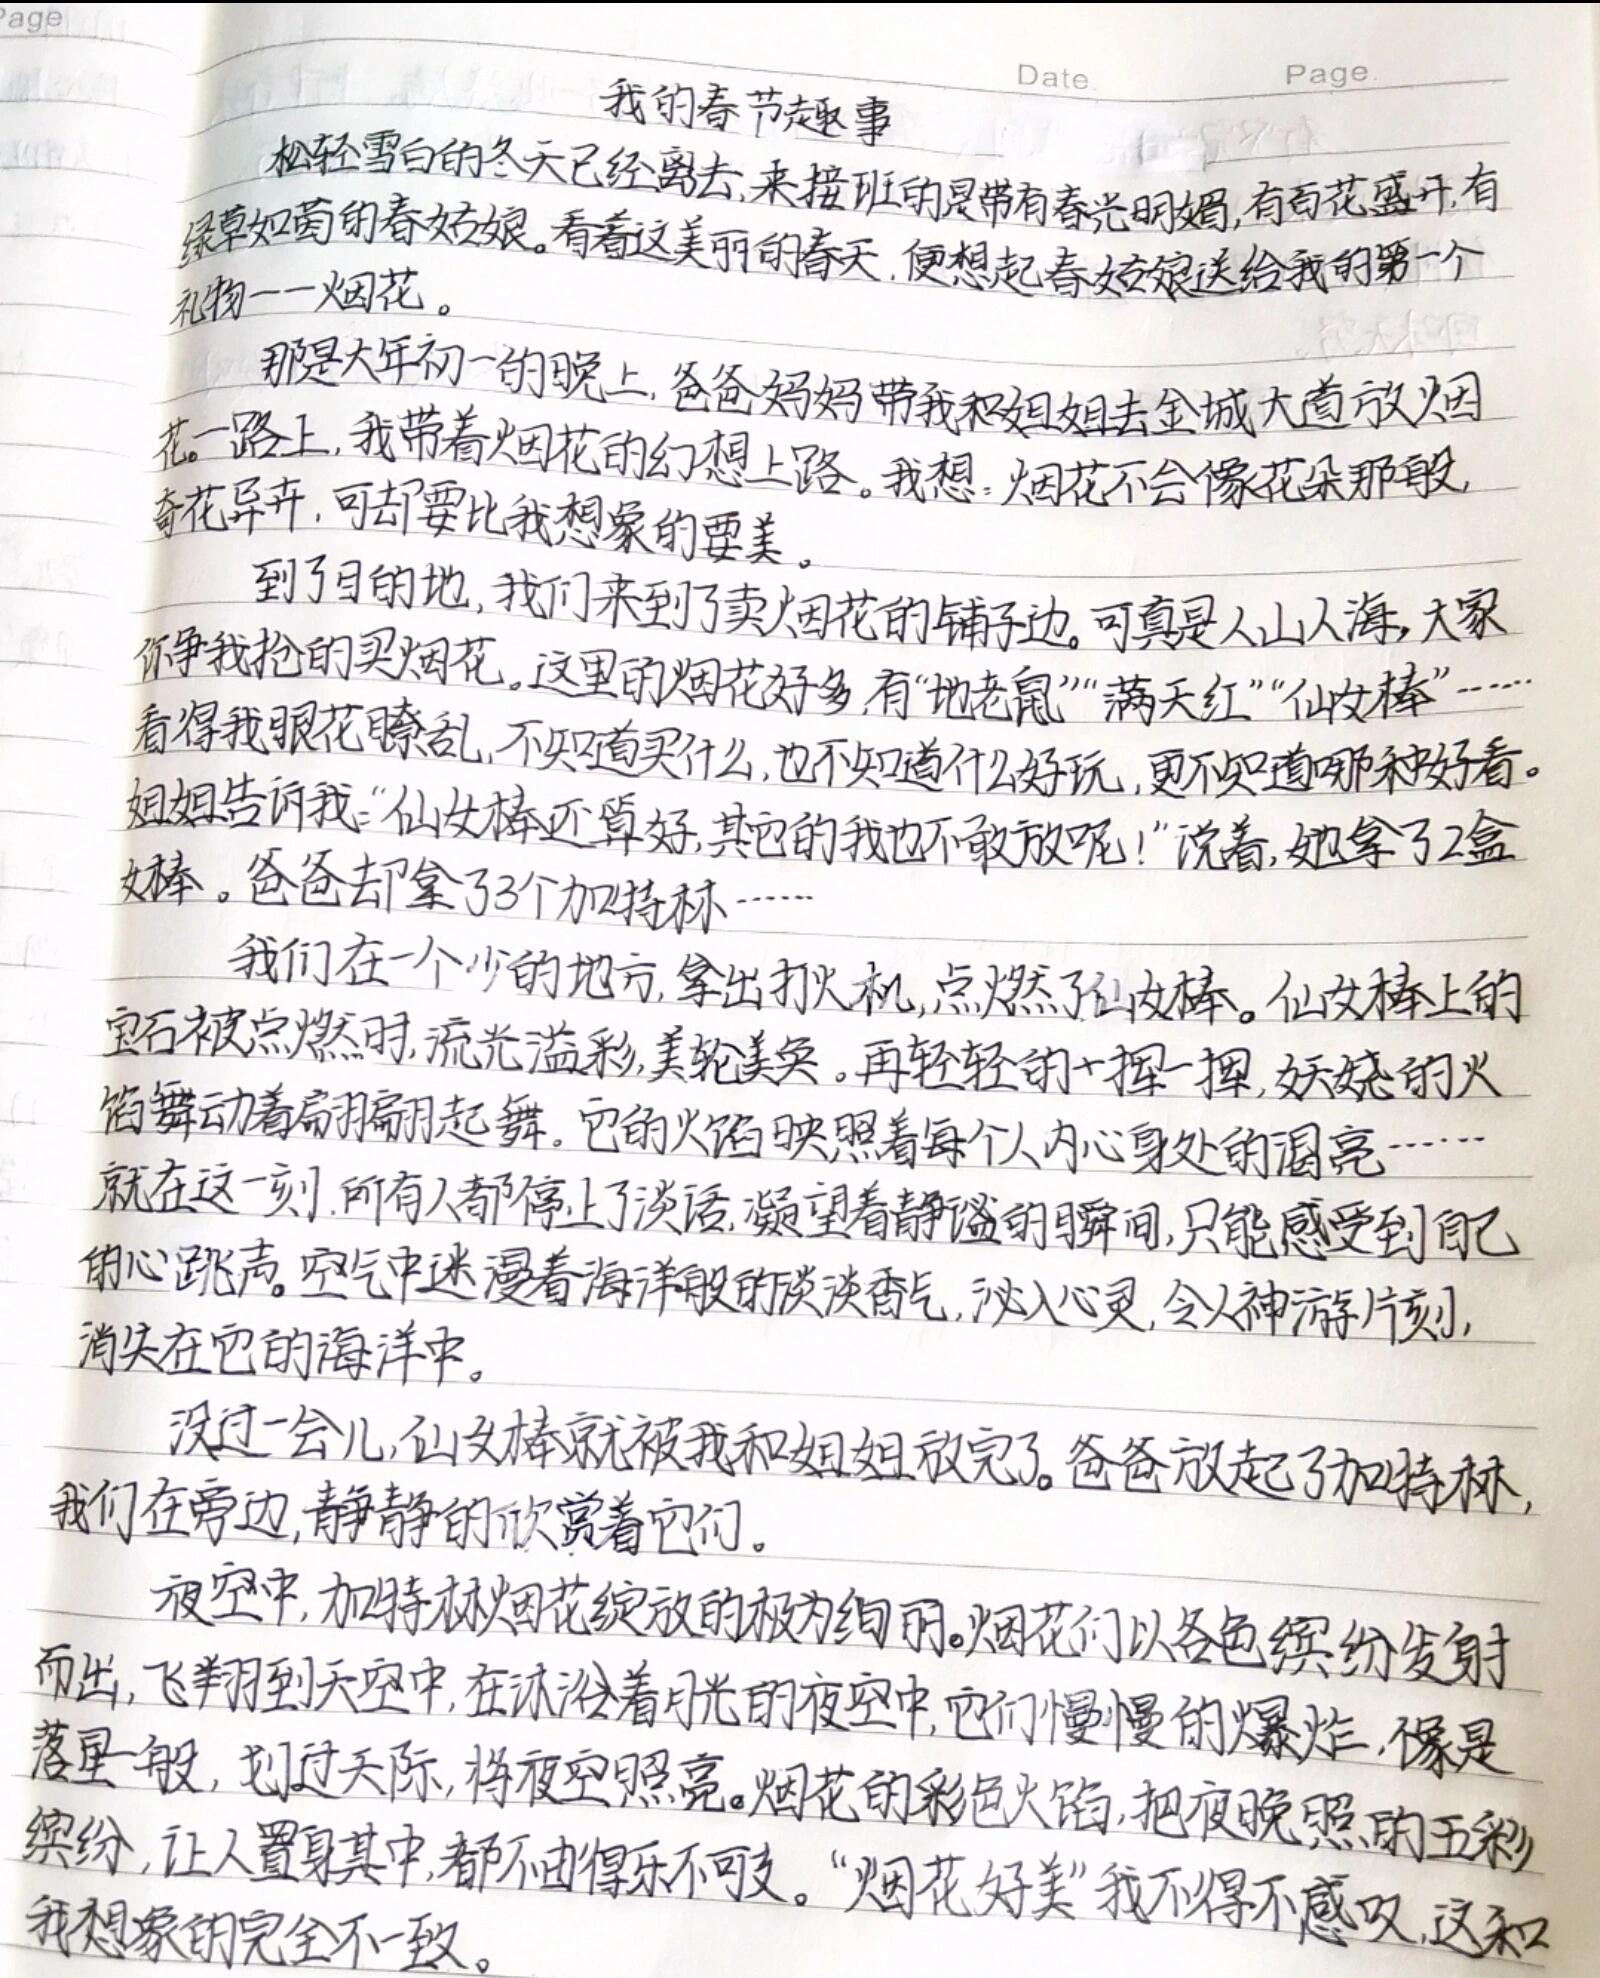 Page
Date.
Page.
我的春节趣事
松轻雪白的冬天已经离去,来接班的是带有春光明媚,有百花盛开,有
绿草如茵的春姑娘。看着这美丽的春天,便想起春姑娘送给我的第一个
礼物——烟花。
那是大年初一的晚上,爸爸妈妈带我和姐姐去金城大道放烟
花。一路上,我带着烟花的幻想上路。我想:烟花不会像花朵那般,
奇花异卉,可却要比我想象的要美。
到了目的地,我们来到了卖烟花的铺子边。可真是人山人海,大家
你争我抢的买烟花。这里的烟花好多,有“地老鼠”“满天红”“仙女棒”……
看得我眼花瞭乱,不知道买什么,也不知道什么好玩,更不知道哪种好看。
姐姐告诉我:“仙女棒还算好,其它的我也不敢放呢!”说着,她拿了2盒
女棒。爸爸却拿了3个加特林……
我们在一个少的地方,拿出打火机,点燃了仙女棒。仙女棒上的
宝石被点燃时,流光溢彩,美轮美奂。再轻轻的一挥一挥,妖娆的火
焰舞动着翩翩起舞。它的火焰映照着每个人内心身处的渴亮……
就在这一刻,所有人都停止了谈话,凝望着静谧的瞬间,只能感受到自己
的心跳声。空气中迷漫着海洋般的淡淡香气,泌入心灵,令人神游片刻,
消失在它的海洋中。
没过一会儿,仙女棒就被我和姐姐放完了。爸爸放起了加特林,
我们在旁边,静静的欣赏着它们。
夜空中,加特林烟花绽放的极为绚丽。烟花们以各色缤纷发射
而出,飞翔到天空中,在沐浴着月光的夜空中,它们慢慢的爆炸,像是
落星一般,划过天际,将夜空照亮。烟花的彩色火焰,把夜晚照的五彩
缤纷,让人置身其中,都不由得乐不可支。“烟花好美”我不得不感叹,这和
我想象的完全不一致。